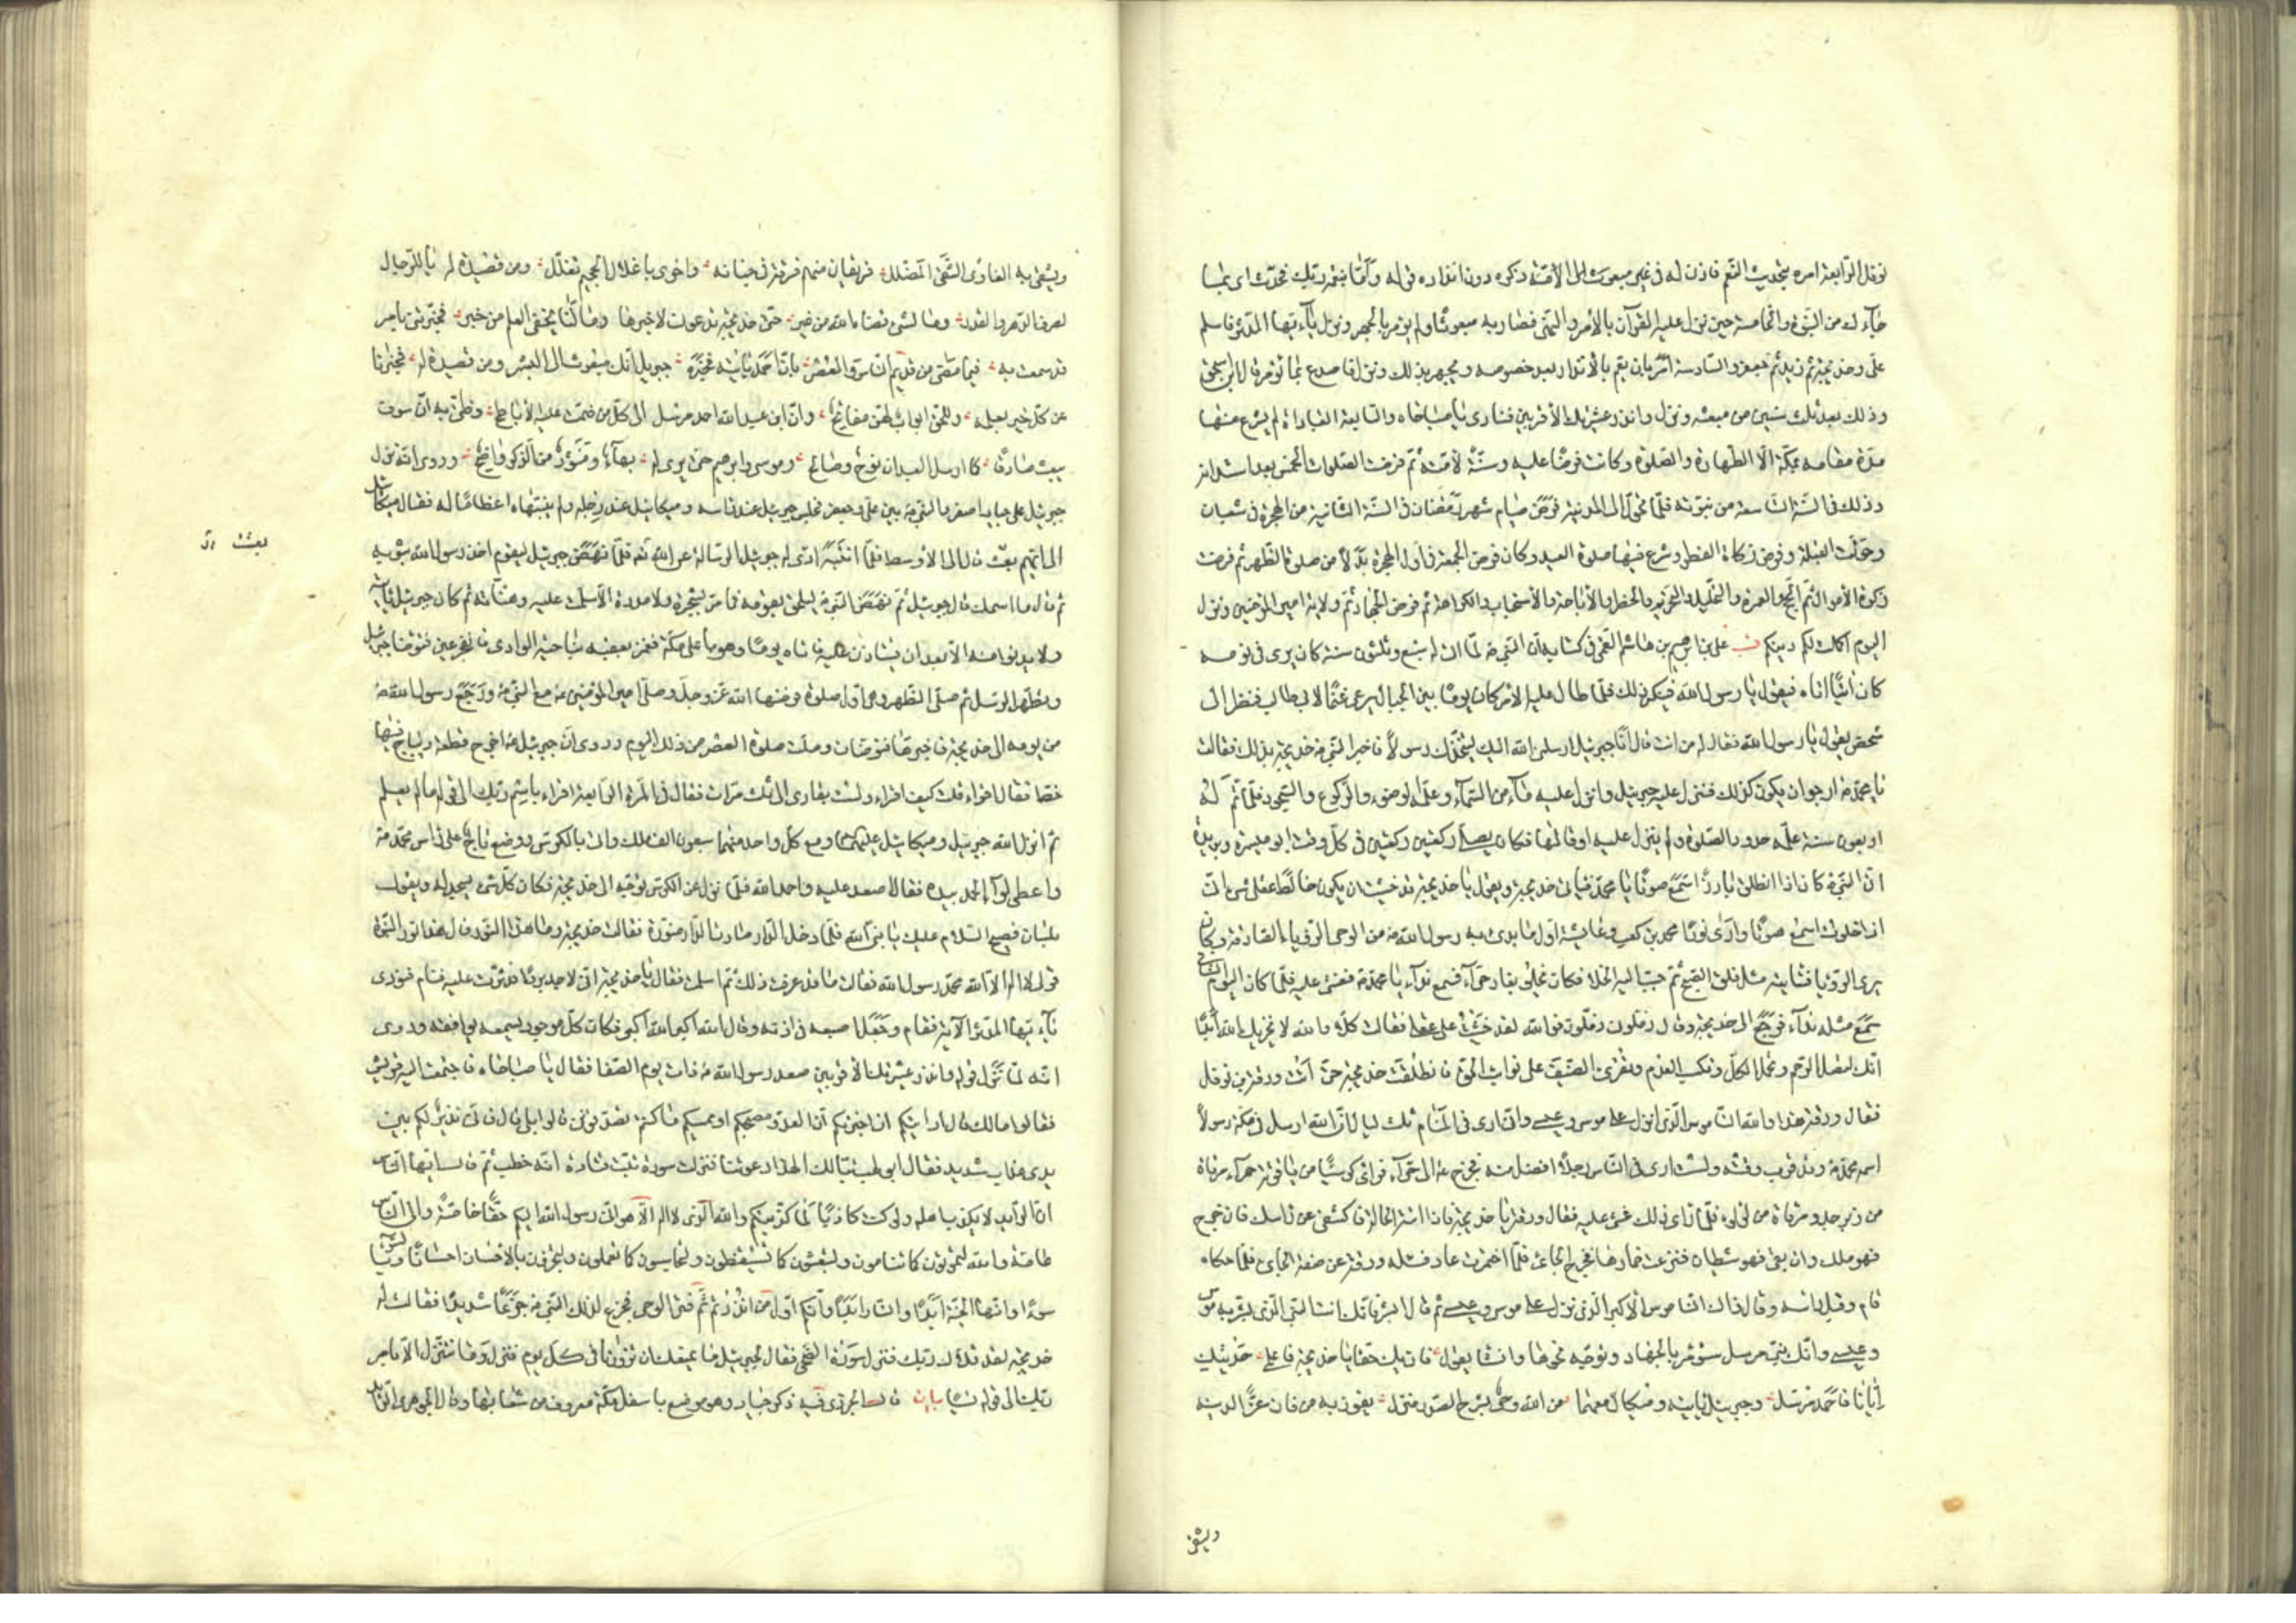 نوفل الرابعة امره بتحديث النعم فاذن له في غيى مبعوث الى الامة ذكره دون انذاره قوله وامّا بنعمة ربك فحدّث اى بما
جاءك من النبوة والخامسة حين نزل عليه القرآن بالأمر والنهى فصار به مبعوثا ولم يؤمر بالجهر ونزل يا ايّها المدثر فاسلم
على وخديجة ثم زيد ثم جعفر والسادسة امر بان يعم بالانذار بعد خصوصه ويجهر بذلك ونزل فاصدع بما تؤمر قال ابن اسحق
وذلك بعد ثلث سنين من مبعثه ونزل وانذر عشيرتك الأقربين فنادى يا صباحاه والسابعة العبادات لم يشرع منها
مدة مقامه بمكة الّا الطهارة والصلوة وكانت فرضا عليه وسنّة لامّته ثم فرضت الصلوات الخمس بعد اسرائه
وذلك في السّنة التاسعة من نبوّته فلمّا تحوّل الى المدينة فرض صيام شهر رمضان في السنة الثانية من الهجرة في شعبان
وحوّلت القبلة وفرض زكاة الفطر وشرع فيها صلوة العيد وكان فرض الجمعة في اول الهجرة بدلا من صلوة الظهر ثم فرضت
زكوة الأموال ثم الحج والعمرة والتحليل والتحريم والحظر والأباحة والأستحباب والكراهة ثم فرض الجهاد ثم ولاية امير المؤمنين ونزل
اليوم اكملت لكم دينكم على بن ابراهيم بن هاشم القمى في كتابه انّ النبى ص لمّا اتى له سبع وثلثون سنة كان يرى في نومه
كان آتيا اتاه فيقول يا رسول الله فينكر ذلك فلمّا طال عليه الأمر كان يوما بين الجبال يرعى غنما لابى طالب فنظر الى
شخص يقول يا رسول الله فقال له من انت قال انا جبرئيل ارسلنى الله اليك ليتخذك رسولا فاخبر النبى ص خديجة بذلك فقالت
يا محمد ص ارجو ان يكون كذلك فنزل عليه جبرئيل وانزل عليه ماء من السّماء وعلّمه الوضوء والركوع والسجود فلمّا تمّ له
اربعون سنة علّمه حدود الصلوة ولم ينزل عليه اوقاتها فكان يصلّى ركعتين ركعتين في كلّ وقت ابو ميسرة وبريدة
انّ النبى ص كان اذا انطلق بارزا سمع صوتا يا محمّد فياتى خديجة ويقول يا خديجة قد خشيت ان يكون خالط عقلى شىء انّى
اذا خلوت اسمع صوتا وارى نورا محمد بن كعب وعايشة اول ما بدى به رسول الله ص من الوحى الرؤياء الصادقة وكان
يرى الرؤيا فتايته مثل فلق الصبح ثم حبّب اليه الخلا فكان يخلو بغار حرآء فسمع ندآء يا محمد ص فغشى عليه فلمّا كان اليوم الثانى
سمع مثله ندآء فرجع الى خديجة وقال زمّلونى زمّلونى فوالله لقد خشيت على عقلى فقالت كلّا والله لا يخزيك الله ابدا
انّك لتصل الرحم وتحمل الكلّ وتكسب المعدم وتقرى الضيف على نوائب الحق فانطلقت خديجة حتّى اتت ورقة بن نوفل
فقال ورقة هذا والله الناموس الّذى انزل على موسى وعيسى وانّى ارى في المنام ثلث ليال انّ الله ارسل في مكة رسولا
اسمه محمّد ص وقد قرب وقته ولست ارى في الناس رجلا افضل منه فخرج ص الى حرآء فرأى كرسيّا من ياقوتة حمرآء مرقاة
من زبرجد ومرقاة من لؤلؤ فلمّا رأى ذلك غشى عليه فقال ورقة يا خديجة فاذا اتته الحالة فاكشفى عن راسك فان خرج
فهو ملك وان بقى فهو شيطان فنزعت خمارها فخرج الجائى فلمّا اختمرت عاد فسئله ورقة عن صفة الجائى فلمّا حكاه
قام وقبل راسه وقال ذاك الناموس الأكبر الّذى نزل على موسى وعيسى ثم قال ابشر فانّك انت النبى الّذى بشّر به موسى
وعيسى وانّك نبىّ مرسل ستؤمر بالجهاد وتوجّه نحوها وانشا يقول فان يك حقا يا خديجة فاعلمى حديثك
ايّانا فاحمد مرسل وجبريل ياتيه وميكال معهما من الله وحى يشرح الصدر منزل يفوز به من فاز عزّا لدينه
ويشقى
ويشقى به الغاوى الشقى المضلل فريقان منهم فرقة في جنانه واخرى باغلال الجحيم تغلّل ومن قصيدة له يا للرجال
لصرف الدهر والقدر وما لشئ قضاه الله من غير حتى خديجة تدعونى لاخبرها وما لنا بخفىّ العلم من خبر فخبّرتنى بامر
قد سمعت به فيما مضى من قديم الناس والعصر بانّ احمد ياتيه فيخبره جبريل انّك مبعوث الى البشر ومن قصيدة له فخبّرنا
عن كلّ خير بعلمه وللحق ابواب لهنّ مفاتح وانّ ابن عبد الله احمد مرسل الى كلّ من ضمّت عليه الأباطح وظنّى به ان سوف
يبعث صادقا كما ارسل العبدان نوح وصالح وموسى وابرهيم حتى يرى له بهاء ومنشور من الذكر واضح وروى انّه نزل
جبرئيل على جياد اصفر والنبى ص بين على وجعفر فجلس جبرئيل عند راسه وميكائيل عند رجله ولم ينبّهاه اعظاما له فقال ميكائيل
الى ايّهم بعثت قال الى الاوسط فلمّا انتبه ادّى اليه جبرئيل الرسالة عن الله تع فلمّا نهض جبرئيل ليقوم اخذ رسول الله بثوبه
بعثت
ثم قال ما اسمك قال جبرئيل ثم نهض النبى ص ليلحق بقومه فما مرّ بشجرة ولا مدرة الّا سلّمت عليه وهنّاته ثم كان جبرئيل ياتيه
ولا يدنو منه الّا بعد ان يستاذن عليه فاتاه يوما وهو باعلى مكة فغمز بعقبه بناحية الوادى فانفجر عين فتوضّا جبرئيل
وتطهّر الرسول ثم صلّى الظهر وهى اول صلوة فرضها الله عزّ وجلّ وصلّى امير المؤمنين ع مع النبى ص ورجع رسول الله ص
من يومه الى خديجة فاخبرها فتوضّات وصلّت صلوة العصر من ذلك اليوم وروى انّ جبرئيل ع اخرج قطعة ديباج فيها
خطّ فقال اقراء قلت كيف اقراء ولست بقارى الى ثلث مرات فقال في المرّة الرابعة اقراء باسم ربك الى قوله ما لم يعلم
ثم انزل الله جبرئيل وميكائيل عليهما ومع كلّ واحد منهما سبعون الف ملك واتى بالكرسى ووضع تاج على راس محمّد ص
واعطى لوآء الحمد بيده فقالا اصعد عليه واحمد الله فلمّا نزل عن الكرسى توجّه الى خديجة فكان كلّ شىء يسجد له ويقول
بلسان فصيح السّلام عليك يا نبىّ الله فلمّا دخل الدار صارت الدار منوّرة فقالت خديجة وما هذا النّور قال هذا نور النبوّة
قولى لا اله الّا الله محمّد رسول الله فقالت طال ما قد عرفت ذلك ثم اسلمت فقال يا خديجة انّى لاجد بردا فدثّرت عليه فنام فنودى
يا ايّها المدثر الآية فقام وجعل اصبعه في اذنه وقال الله اكبر الله اكبر فكان كلّ موجود يسمعه يوافقه وروى
انّه لمّا نزل قوله وانذر عشيرتك الأقربين صعد رسول الله ص ذات يوم الصفا فقال يا صباحاه فاجتمعت اليه قريش
فقالوا مالك قال ارايتكم ان اخبرتكم انّ العدوّ مصبحكم او ممسيكم ما كنتم تصدّقونى قالوا بلى قال فانّى نذير لكم بين
يدى عذاب شديد فقال ابو لهب تبّا لك الهذا دعوتنا فنزلت سورة تبّت قتادة انّه خطب ثم قال ايّها الناس
انّ الرائد لا يكذب اهله ولو كنت كاذبا لما كذبتكم والله الّذى لا اله الّا هو انّى رسول الله اليكم حقّا خاصّة والى الناس
عامّة والله لتموتون كما تنامون ولتبعثون كما تستيقظون ولتحاسبون كما تعملون ولتجزون بالأحسان احسانا وبالسوء
سوءا وانّها الجنّة ابدا والنار ابدا وانّكم اول من انذرتم ثم فتر الوحى فجزع لذلك النبى ص جزعا شديدا فقالت له
خديجة لقد قلاك ربّك فنزل سورة الضحى فقال لجبرئيل ما يمنعك ان تزورنا في كلّ يوم فنزل وما نتنزّل الّا بامر
ربك الى قوله نسيّا بيان قال الجزرى فيه ذكر جياد وهو موضع باسفل مكة معروف من شعابها وقال الجوهرى الرائد